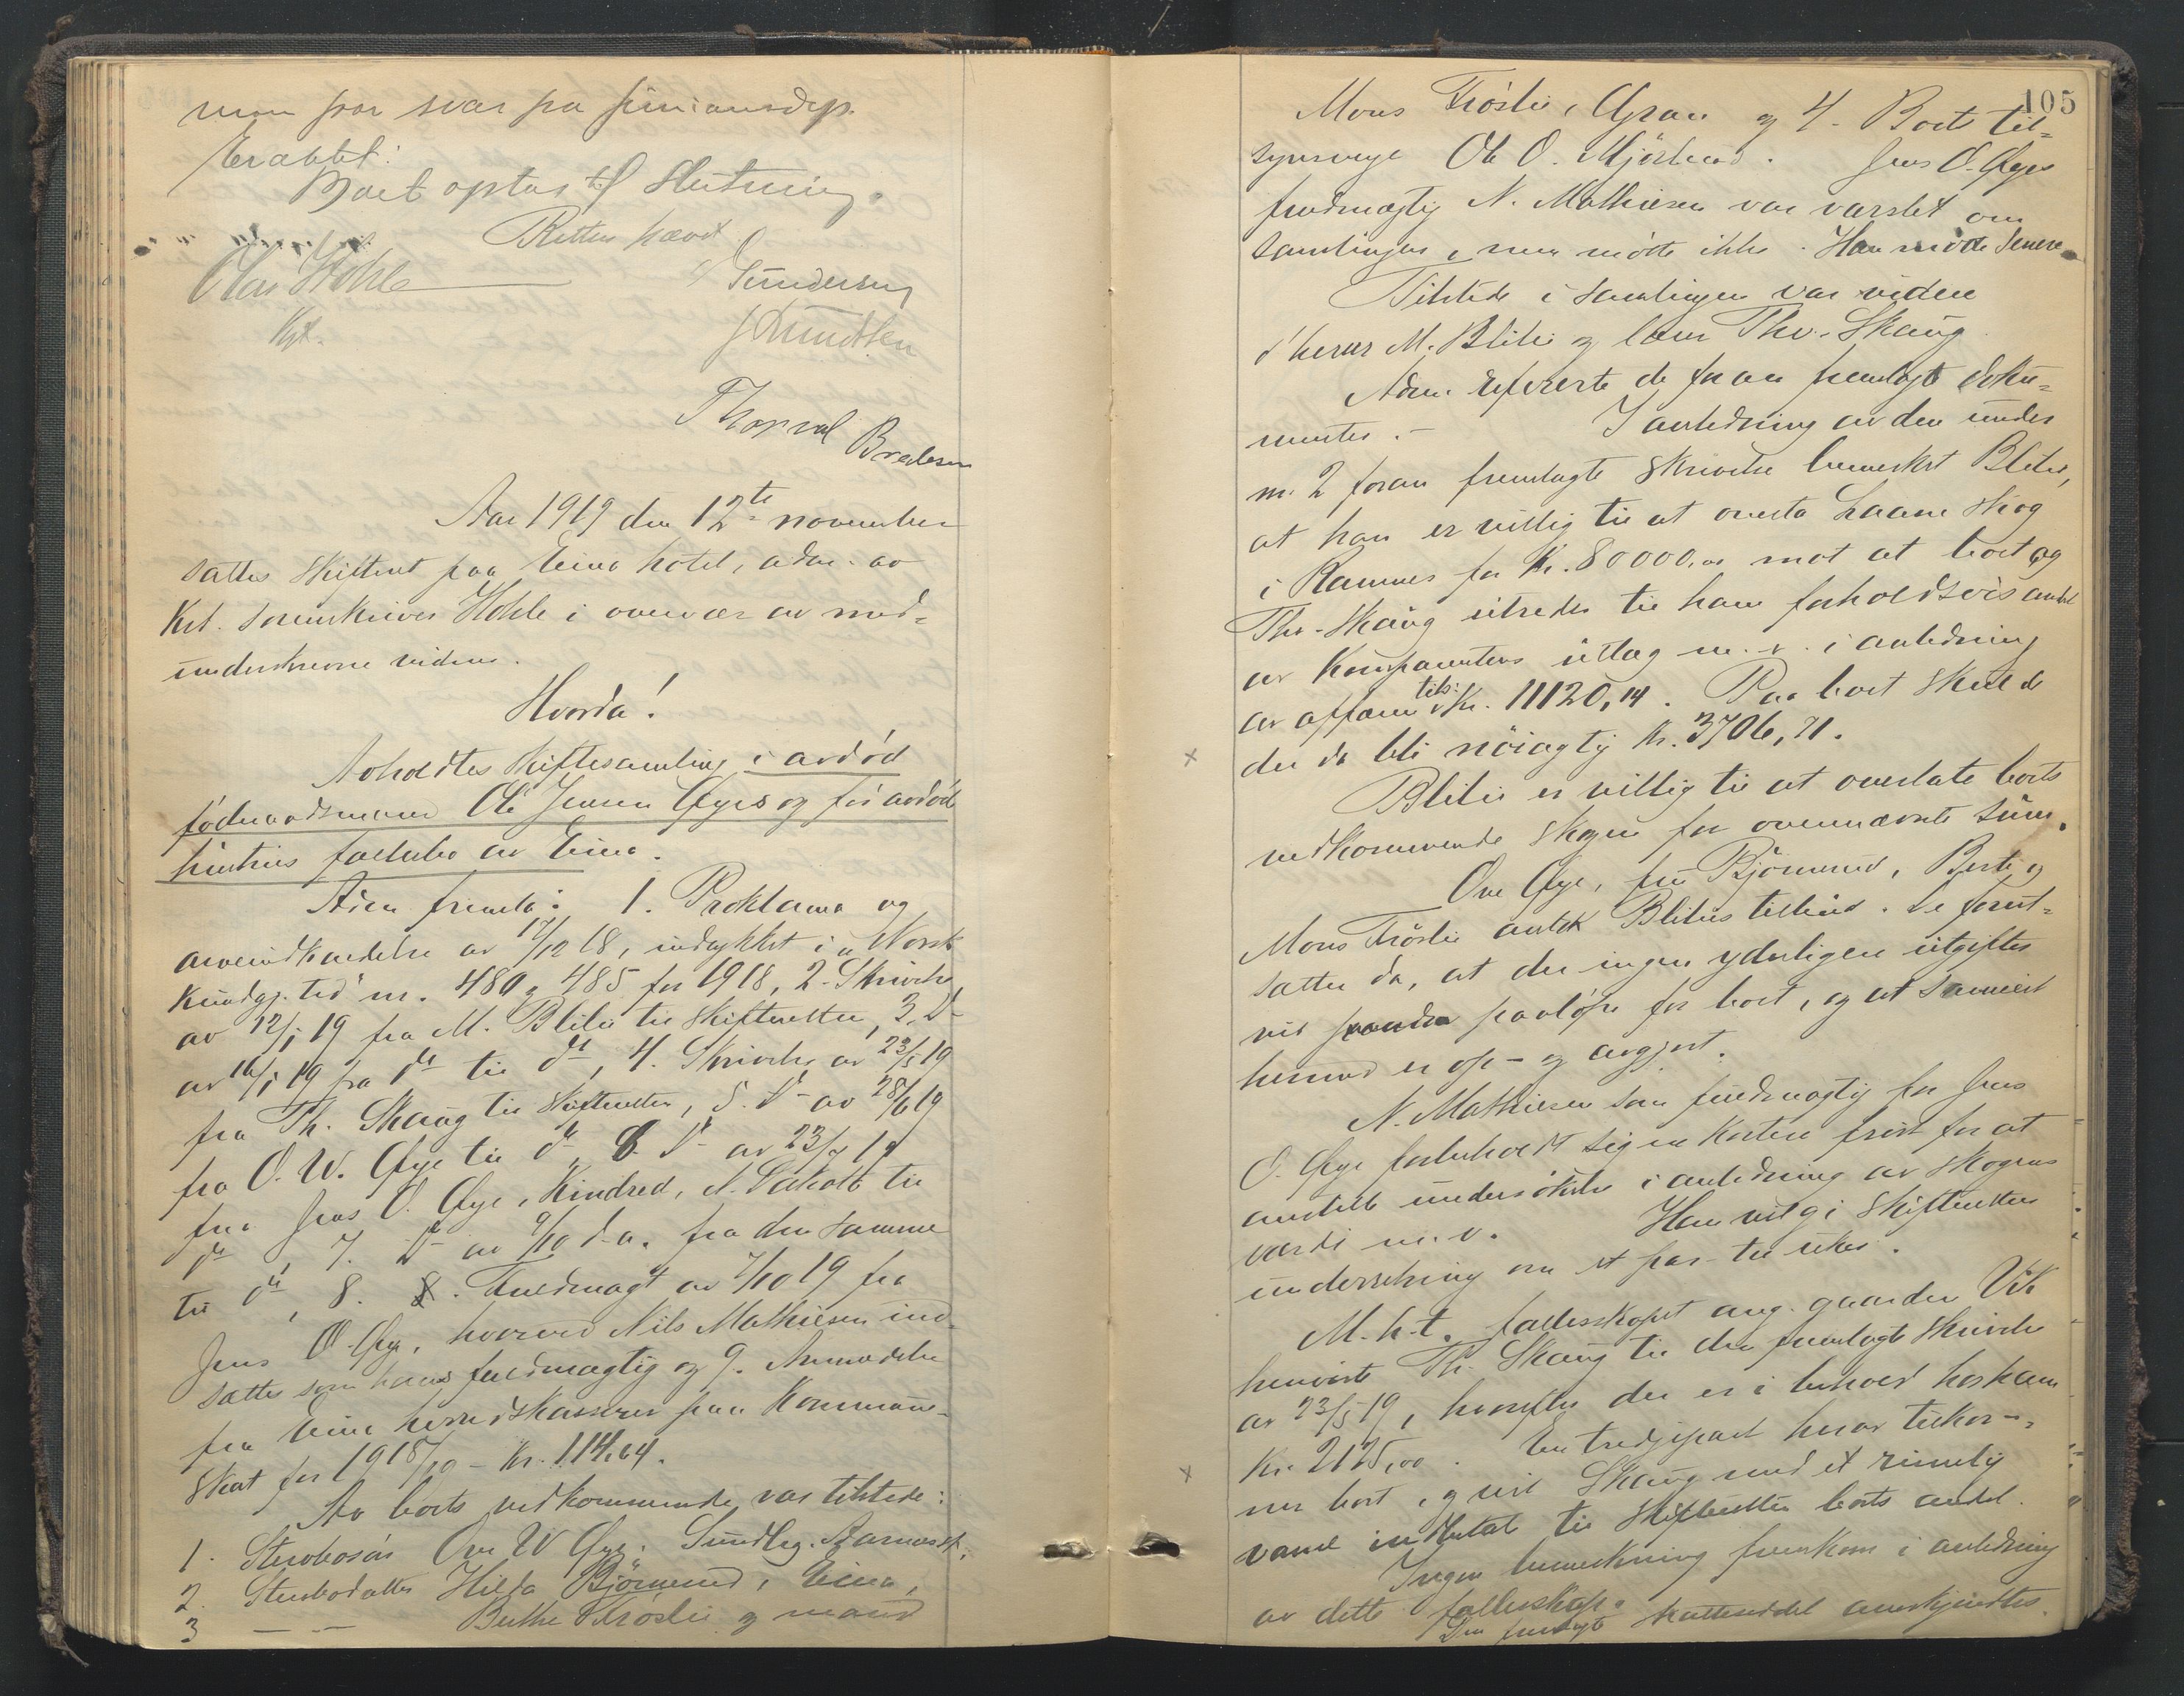 man faar svar fra finansdep.
Eraktet:
Boet optas til slutning.
Retten hævet
Olai Hohle
Kst.
Gundersen
J Knudsen
Thorval Bredesen
Aar 1919 den 12te november
sattes skifteret paa Eina hotel, adm. av
kst. sorenskriver Hohle i overvær av med-
underskrevne vidner.
Hvorda!
Avholdtes skiftesamling i avdød
føderaadsmand Ole Jensen Øyes og før avdød
hustrus fællesbo av Eina.
Adm. fremla: 1. Proklama og
arveindkaldelse av 17/12 18, indrykket i "Norsk
Kundgj. tid" nr. 480 og 485 for 1918, 2. Skrivelse
av 12/1 19 fra M. Blilie til skifteretten, 3. Do
av 16/1 19 fra do til do, 4. Skrivelse av 23/5 19
fra Th. Skaug til skifteretten, 5. Do av 28/6 19
fra O. W. Øye til do, 6. Do av 23/7 19
fra Jens O. Øye, Kindred, N. Dakota til
do, 7. Do av 9/10 d.a. fra den samme
til do, 8. Fuldmagt av 7/10 19 fra
Jens O. Øye, hvorved Nils Mathiesen ind-
sættes som hans fuldmægtig og 9. Anmeldelse
fra Eina herredskasserer paa kommune-
skat for 1918/19 - kr. 114,64.
Av boets vedkommende var tilstede:
1. Stervbosøn Ove W Øye, Sundby, Aarnes st.
2. Stervbodatter Hilda Bjørnerud, Eina,
3 — — Berthe Frøslie og mand
105
Mons Frøslie, Gran og 4. Boets til-
synsverge Ole O. Mjørlund. Jens O. Øyes
fuldmægtig N. Mathiesen var varslet om
samlingen, men møtte ikke. Han møtte senere
Tilstede i samlingen var videre
d'herrer M. Blilie og lensm Thv. Skaug.
Adm. refererte de foran fremlagte doku-
menter. - I anledning av den under
nr. 2 foran fremlagte skrivelse bemerket Blilie,
at han er villig til at overta Laane skog
i Ramnes for kr. 80000,00 mot at boet og
Thv. Skaug utreder til ham forholdsvis andel
av kompaniets utlæg m. v. i anledning
av affæren tils: kr. 11120,14. Paa boet skulde
der da bli nøiagtig kr. 3706,71.
Blilie er villig til at overlate boets
vedkommende skogen for ovennævnte sum.
Ove Øye, fru Bjørnerud, Berte og
Mons Frøslie antok Blilies tilbud. De forut-
sætter da, at der ingen yderligere utgifter
vil paaløpe for boet, og at sameiet
hermed er op- og avgjort.
N. Mathiesen som fuldmægtig for Jens
O. Øye forbeholdt sig en kortere frist for at
anstille undersøkelse i anledning av skogens
værdi m. v. Han vil gi skifteretten
underretning om et par-tre uker.
M. h. t. fællesskapet ang. gaarden Vik
henviste Th. Skaug til den fremlagte skrivelse
av 23/5 19, hvorefter der er i behold hos ham
kr. 2125,00. En tredjepart herav tilkom-
mer boet, og vil Skaug med et rimelig
varsel indbetale til skifteretten boets andel.
Ingen bemerkning fremkom i anledning
av dette fællesskap.
Den fremlagte skatteseddel anerkjendtes.